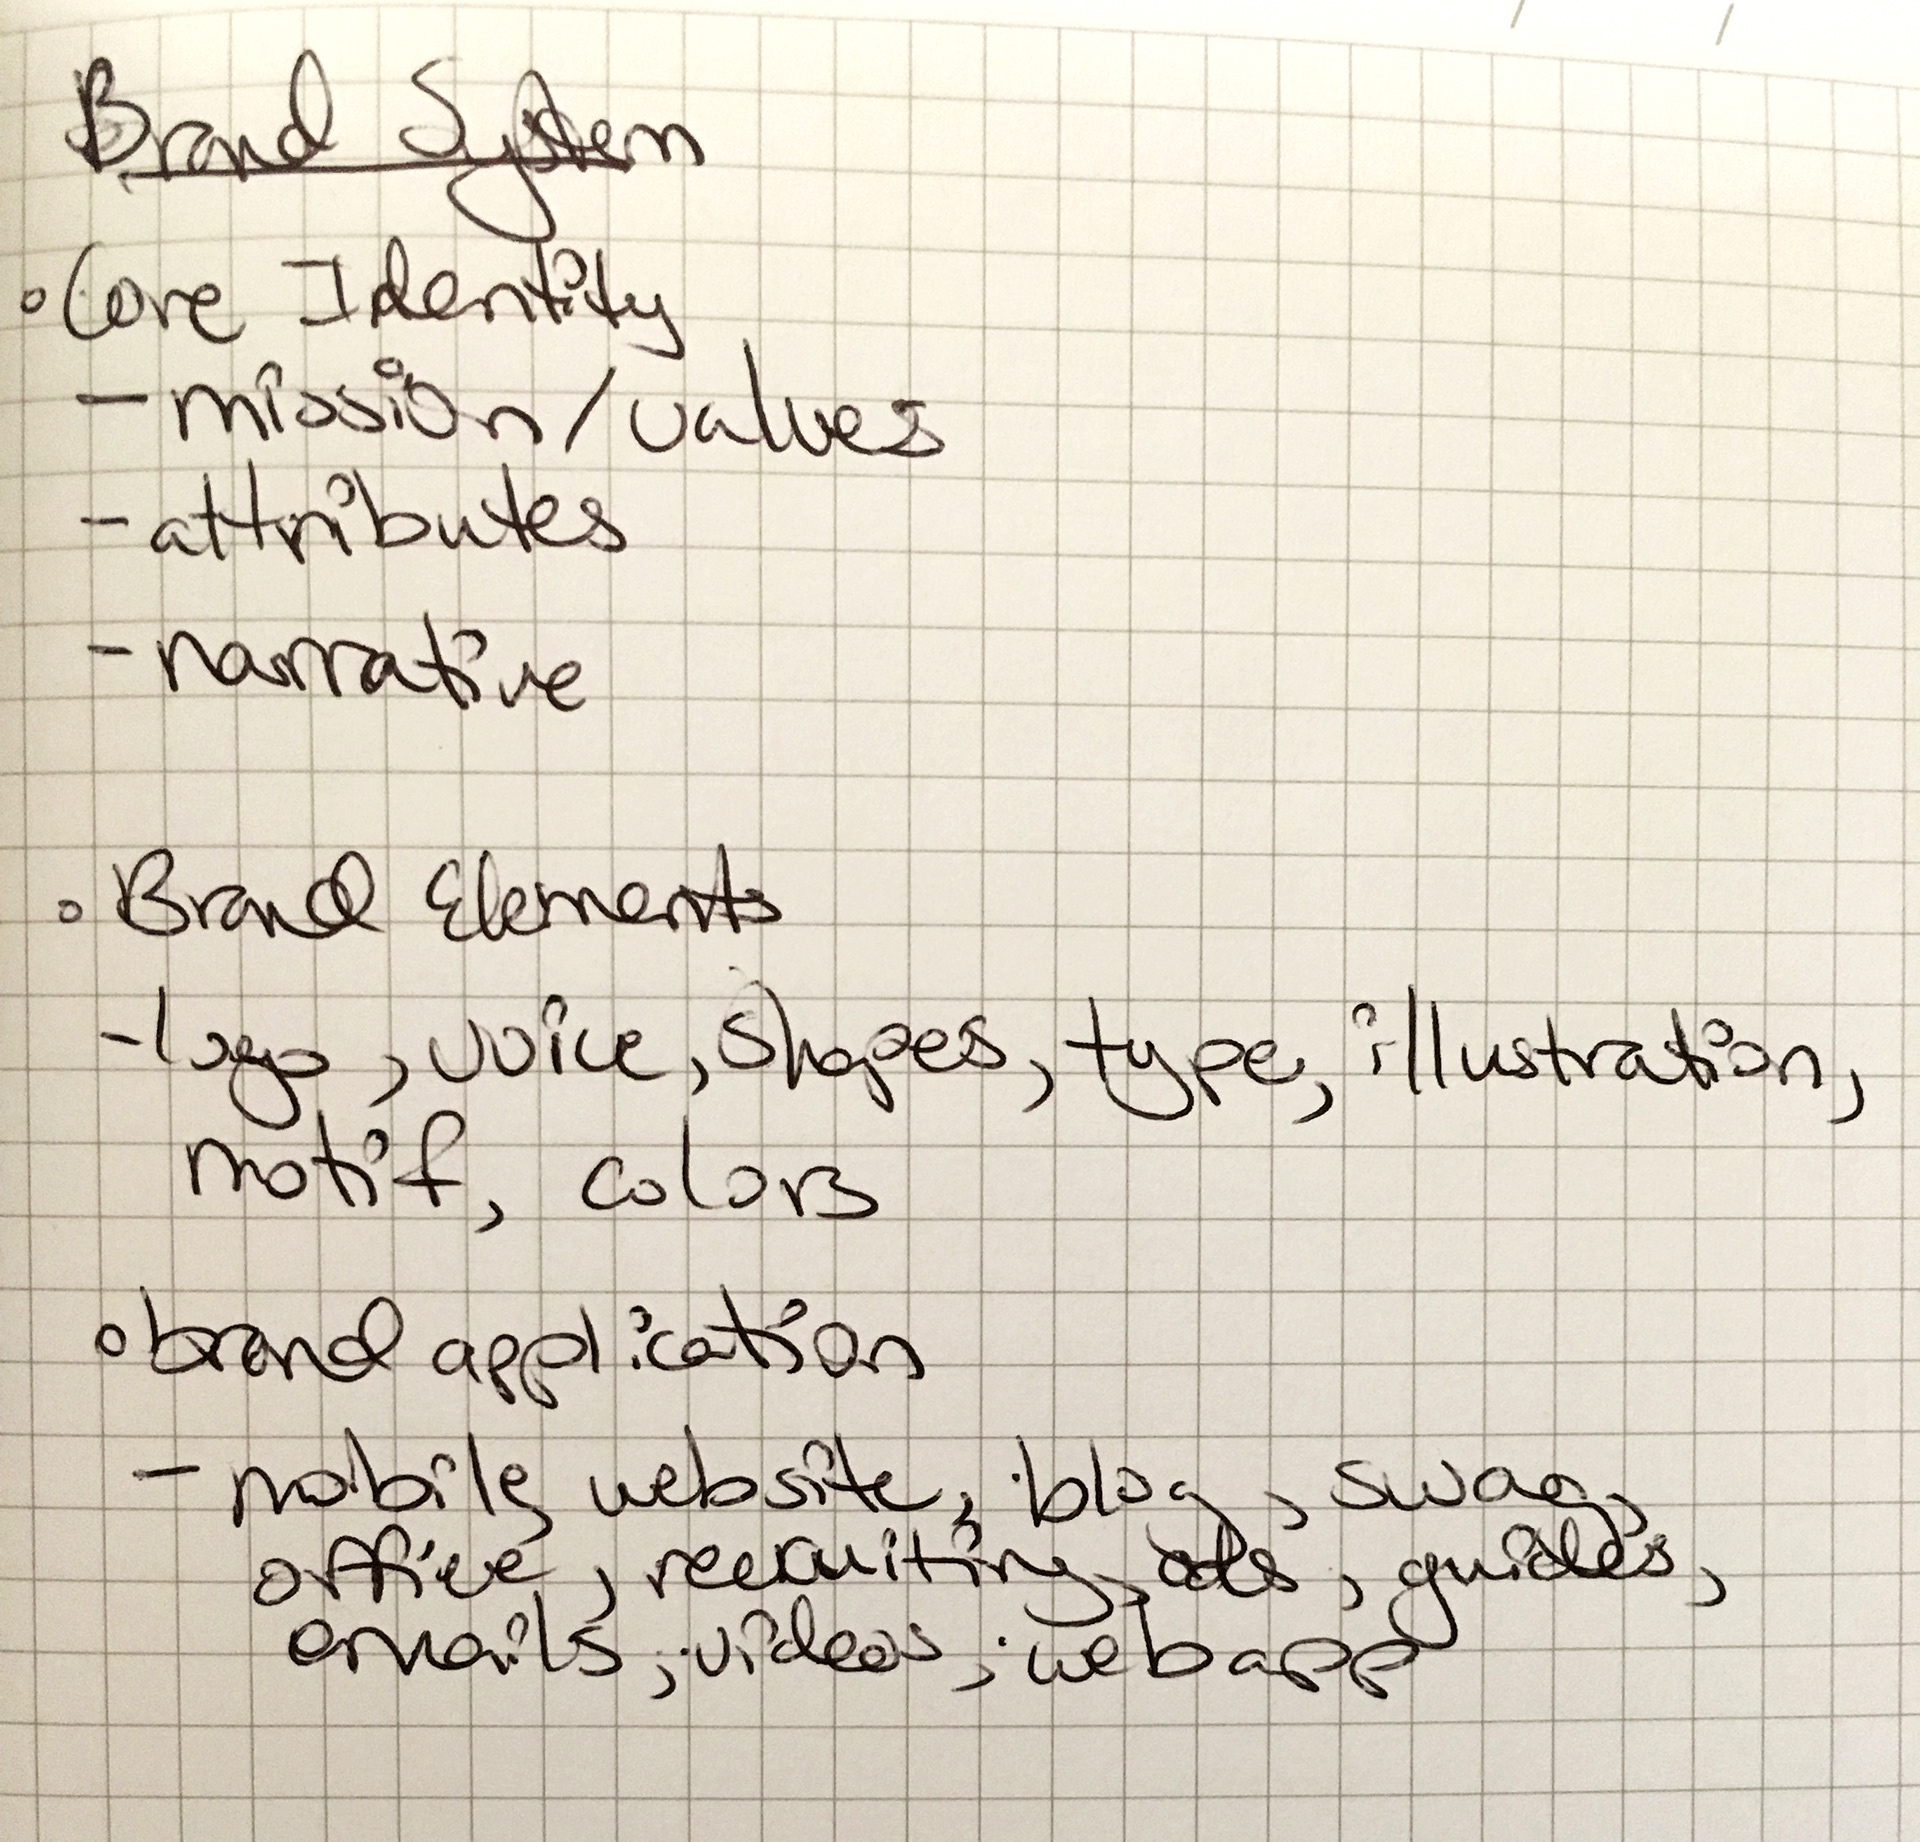 Brand System
◦ Core Identity
- mission/values
- attributes
- narrative
◦ Brand Elements
- logo, voice, shapes, type, illustration,
motif, colors
◦ brand application
- mobile, website, blog, swag,
office, recruiting, ads, guides,
emails, videos, webapp